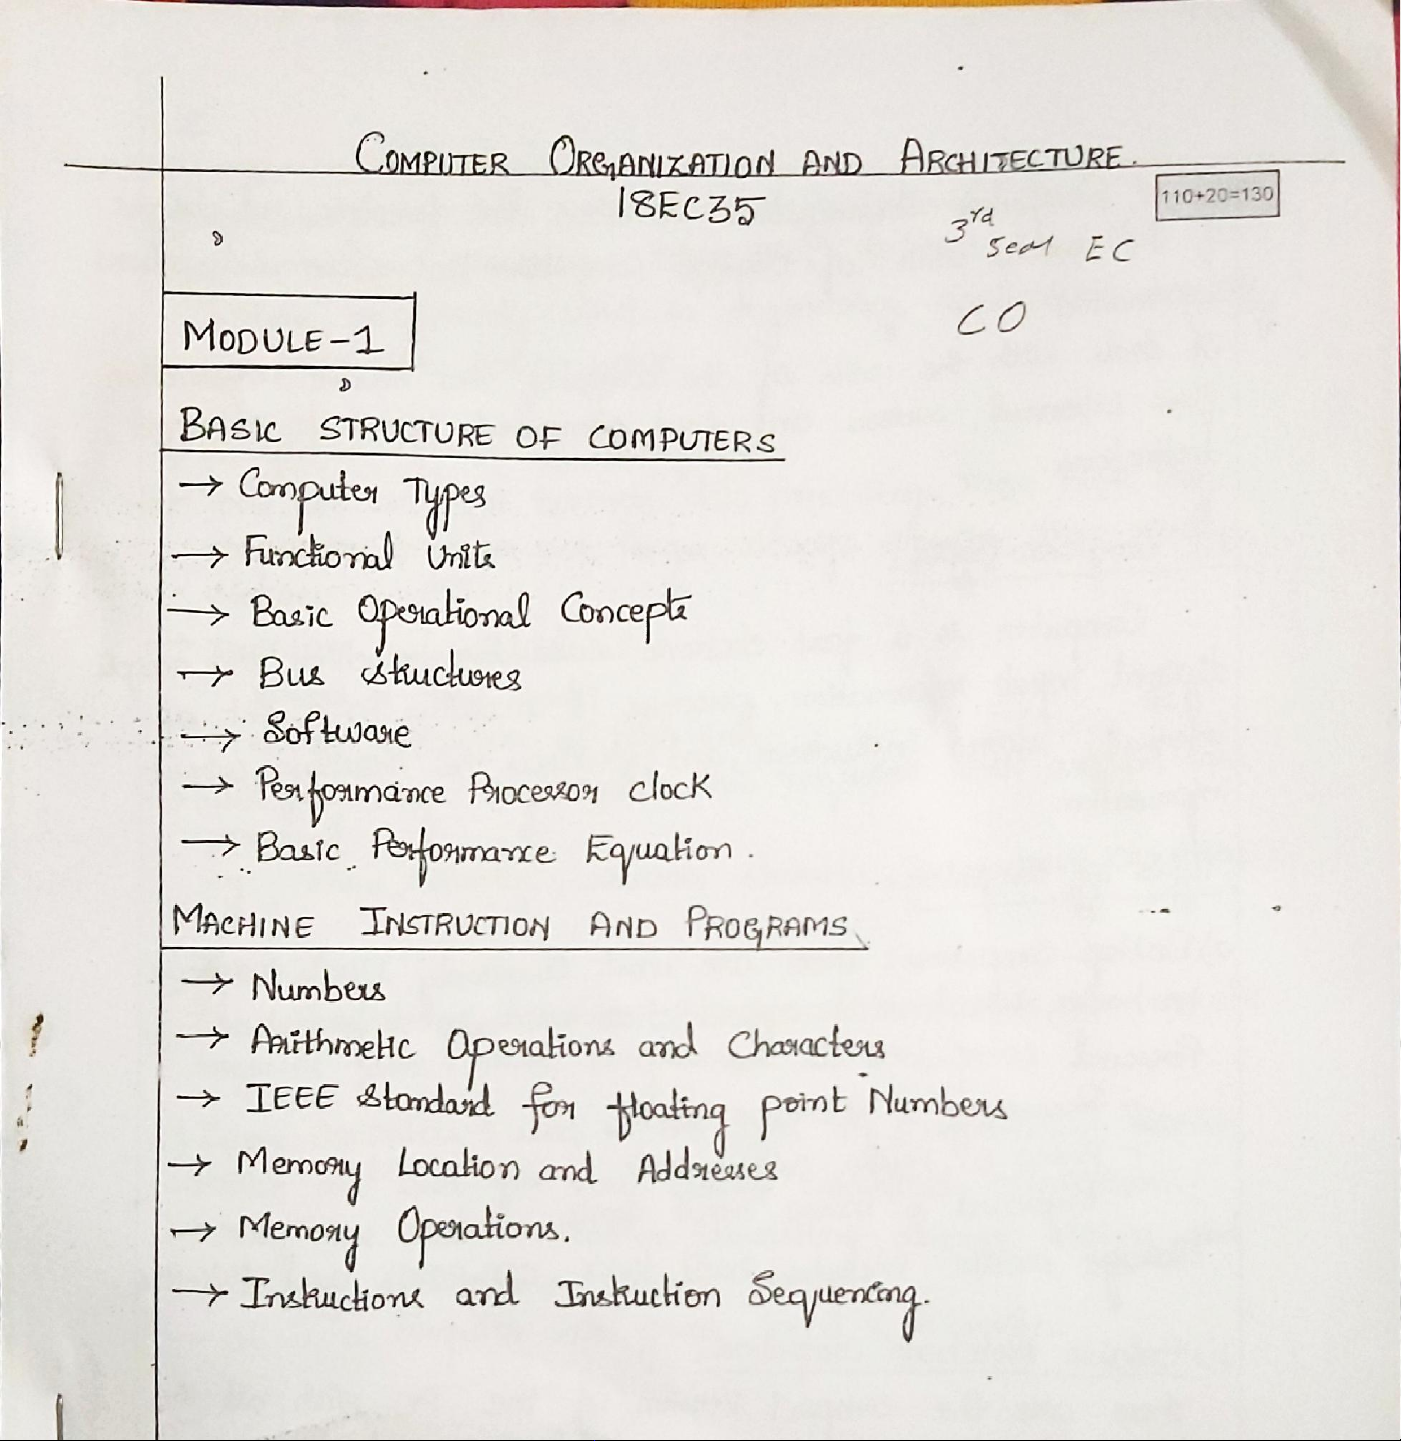 COMPUTER ORGANIZATION AND ARCHITECTURE.
18EC35
110+20=130
3rd Sem EC
CO
MODULE-1
BASIC STRUCTURE OF COMPUTERS
→ Computer Types
→ Functional Units
→ Basic Operational Concepts
→ Bus Structures
→ Software
→ Performance Processor clock
→ Basic Performance Equation.
MACHINE INSTRUCTION AND PROGRAMS
→ Numbers
→ Arithmetic Operations and Characters
→ IEEE Standard for floating point Numbers
→ Memory Location and Addresses
→ Memory Operations.
→ Instructions and Instruction Sequencing.